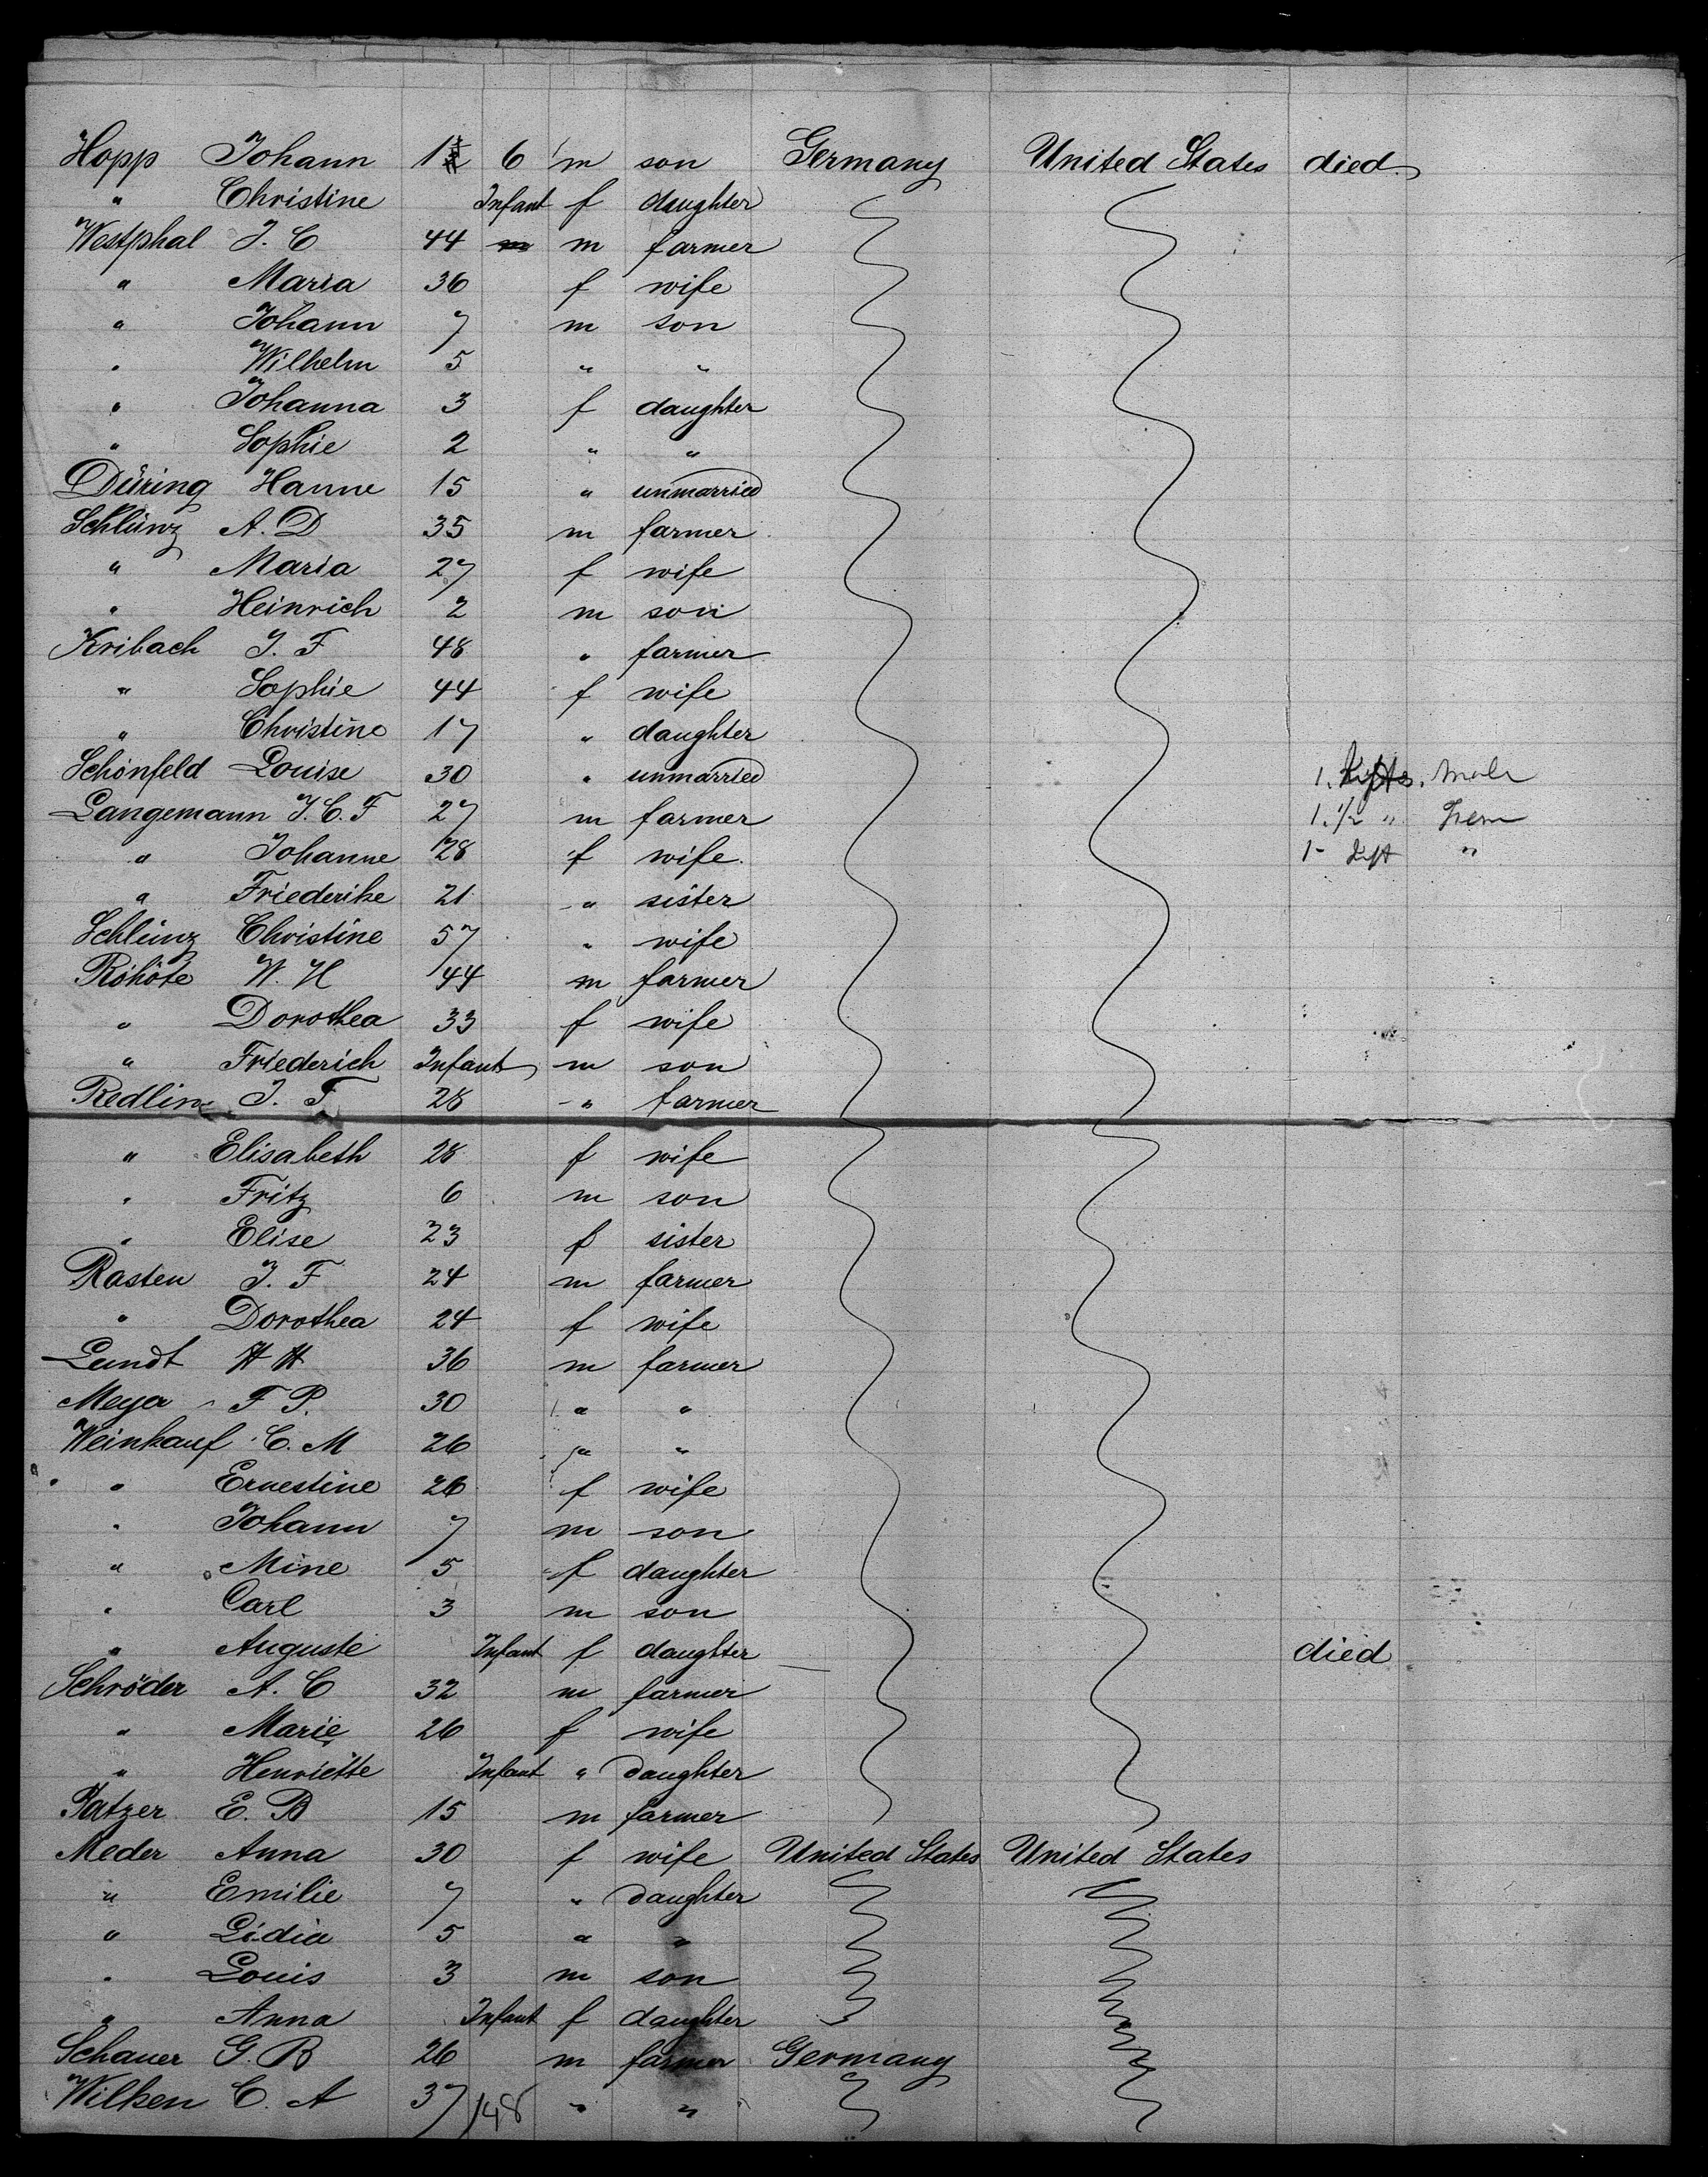 Hopp Johann 1 6 m son Germany United States died
" Christine Infant f daughter
Westphal J. C 44 m farmer
" Maria 36 f wife
" Johann 7 m son
" Wilhelm 5 " "
" Johanna 3 f daughter
" Sophie 2 " "
Düring Hanne 15 " unmarried
Schlünz A. D 35 m farmer
" Maria 27 f wife
" Heinrich 2 m son
Kribach J. F 48 " farmer
" Sophie 44 f wife
" Christine 17 " daughter
Schönfeld Louise 30 " unmarried 1. Male
Langemann J. C. F 27 m farmer 1. 1/2 " Fem
" Johanne 28 f wife 1- "
" Friederike 21 " sister
Schlünz Christine 57 " wife
Röhöte W. H 44 m farmer
" Dorothea 33 f wife
" Friederich Infant m son
Redlin J. F 28 " farmer
" Elisabeth 28 f wife
" Fritz 6 m son
" Elise 23 f sister
Rasten J. F 24 m farmer
" Dorothea 24 f wife
Lundt H H 36 m farmer
Meyer F P. 30 " "
Weinkauf C. M 26 " "
" Ernestine 26 f wife
" Johann 7 m son
" Mine 5 f daughter
" Carl 3 m son
" Auguste Infant f daughter died
Schröder A. C 32 m farmer
" Marie 26 f wife
" Henriette Infant " daughter
Patzer E. B 15 m farmer
Meder Anna 30 f wife United States United States
" Emilie 7 " daughter
" Lidia 5 " "
" Louis 3 m son
" Anna Infant f daughter
Schauer G. B 26 m farmer Germany
Wilken C. A 37 148 " "